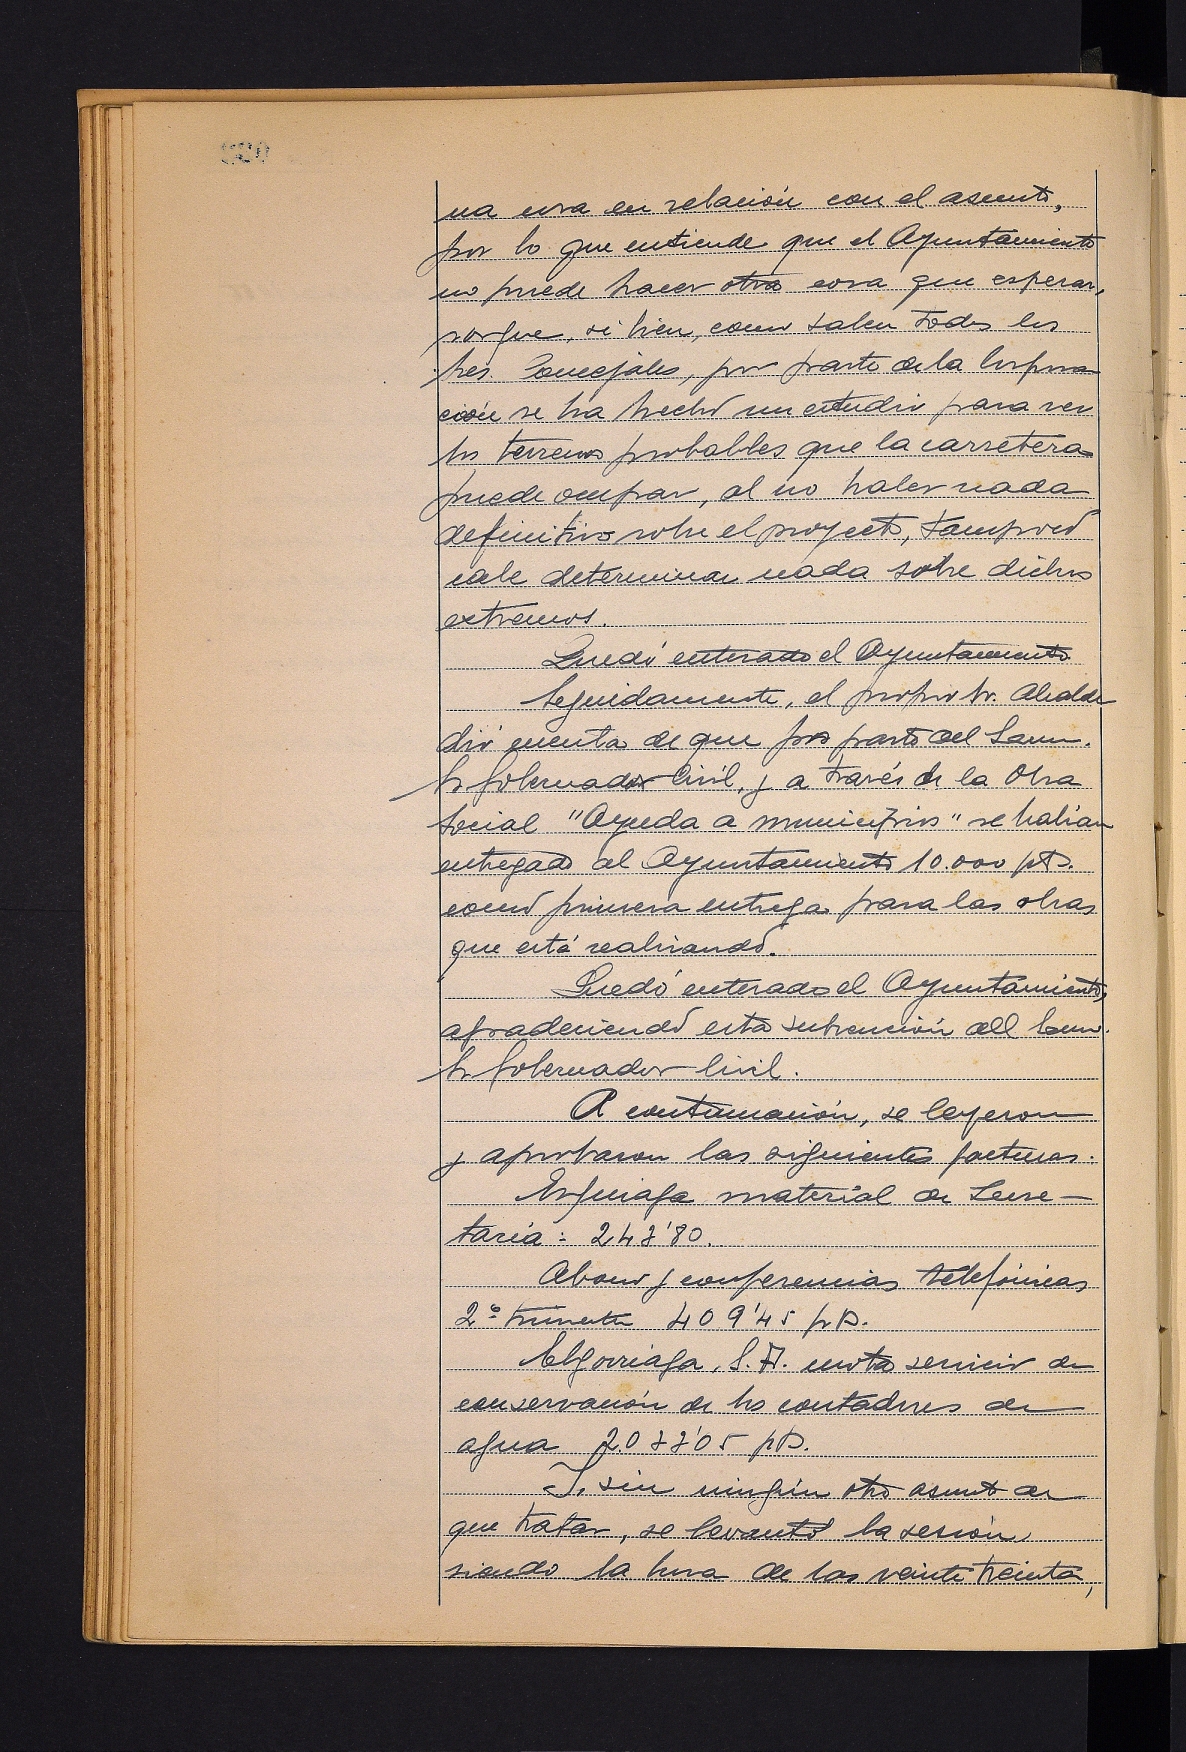 na cosa en relación con el asunto,
por lo que entiende que el Ayuntamiento
no puede hacer otra cosa que esperar,
porque, si bien, como saben todos los
Sres. Concejales, por parte de la Corpora-
ción se ha hecho un estudio para ver
los terrenos probables que la carretera
puede ocupar, al no haber nada
definitivo sobre el proyecto, tampoco
cabe determinar nada sobre dichos
extremos.
Quedó enterado el Ayuntamiento
Seguidamente, el propio Sr. Alcalde
dió cuenta de que por parte del Excmo.
Sr Gobernador Civil, y a través de la Obra
Social "Ayuda a municipios" se habían
entregado al Ayuntamiento 10.000 pts.
como primera entrega para las obras
que está realizando.
Quedó enterado el Ayuntamiento,
agradeciendo esta subvención del Excmo.
Sr Gobernador Civil.
A continuación, se leyeron
y aprobaron las siguientes facturas.
material de Secre-
taría: 247'80.
Abono y conferencias telefónicas
2º trimestre 409'45 pts.
Elgorriaga, S.A. servicio de
conservación de los contadores de
agua 2.077'05 pts.
Y, sin ningún otro asunto de
que tratar, se levantó la sesión
siendo la hora de las veinte treinta,